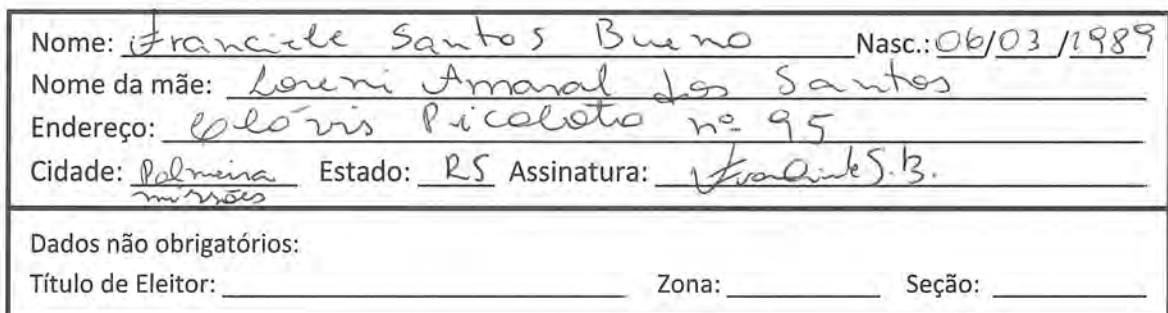 Nome: Franciele Santos Bueno Nasc.: 06/03/1989
Nome da mãe: Loreni Amaral dos Santos
Endereço: Clóvis Picoloto nº 95
Cidade: Palmeira Estado: RS Assinatura: Franciele S.B.
missões
Dados não obrigatórios:
Título de Eleitor: Zona: Seção: